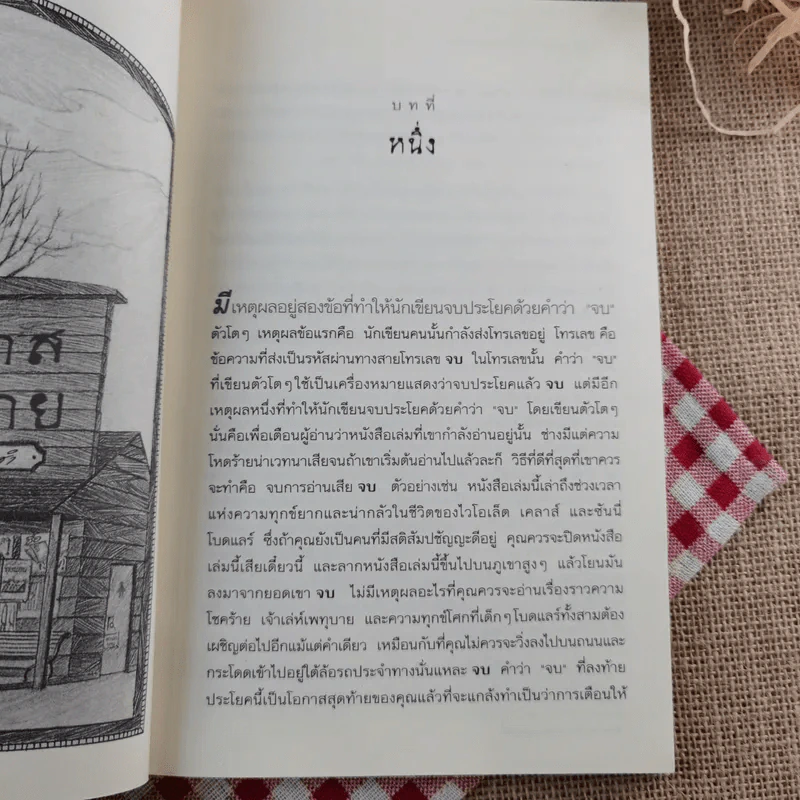 าส
าย
บ ท ที่
หนึ่ง
มีเหตุผลอยู่สองข้อที่ทำให้นักเขียนจบประโยคด้วยคำว่า "จบ"
ตัวโตๆ เหตุผลข้อแรกคือ นักเขียนคนนั้นกำลังส่งโทรเลขอยู่ โทรเลข คือ
ข้อความที่ส่งเป็นรหัสผ่านทางสายโทรเลข จบ ในโทรเลขนั้น คำว่า "จบ"
ที่เขียนตัวโตๆ ใช้เป็นเครื่องหมายแสดงว่าจบประโยคแล้ว จบ แต่มีอีก
เหตุผลหนึ่งที่ทำให้นักเขียนจบประโยคด้วยคำว่า "จบ" โดยเขียนตัวโตๆ
นั่นคือเพื่อเตือนผู้อ่านว่าหนังสือเล่มที่เขากำลังอ่านอยู่นั้น ช่างมีแต่ความ
โหดร้ายน่าเวทนาเสียจนถ้าเขาเริ่มต้นอ่านไปแล้วละก็ วิธีที่ดีที่สุดที่เขาควร
จะทำคือ จบการอ่านเสีย จบ ตัวอย่างเช่น หนังสือเล่มนี้เล่าถึงช่วงเวลา
แห่งความทุกข์ยากและน่ากลัวในชีวิตของไวโอเล็ต เคลาส์ และซันนี่
โบดแลร์ ซึ่งถ้าคุณยังเป็นคนที่มีสติสัมปชัญญะดีอยู่ คุณควรจะปิดหนังสือ
เล่มนี้เสียเดี๋ยวนี้ และลากหนังสือเล่มนี้ขึ้นไปบนภูเขาสูงๆ แล้วโยนมัน
ลงมาจากยอดเขา จบ ไม่มีเหตุผลอะไรที่คุณควรจะอ่านเรื่องราวความ
โชคร้าย เจ้าเล่ห์เพทุบาย และความทุกข์โศกที่เด็กๆ โบดแลร์ทั้งสามต้อง
เผชิญต่อไปอีกแม้แต่คำเดียว เหมือนกับที่คุณไม่ควรจะวิ่งลงไปบนถนนและ
กระโดดเข้าไปอยู่ใต้ล้อรถประจำทางนั่นแหละ จบ คำว่า "จบ" ที่ลงท้าย
ประโยคนี้เป็นโอกาสสุดท้ายของคุณแล้วที่จะแกล้งทำเป็นว่าการเตือนให้